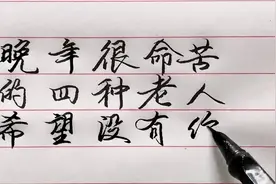 晚年很命苦
的四种老人
希望没有你